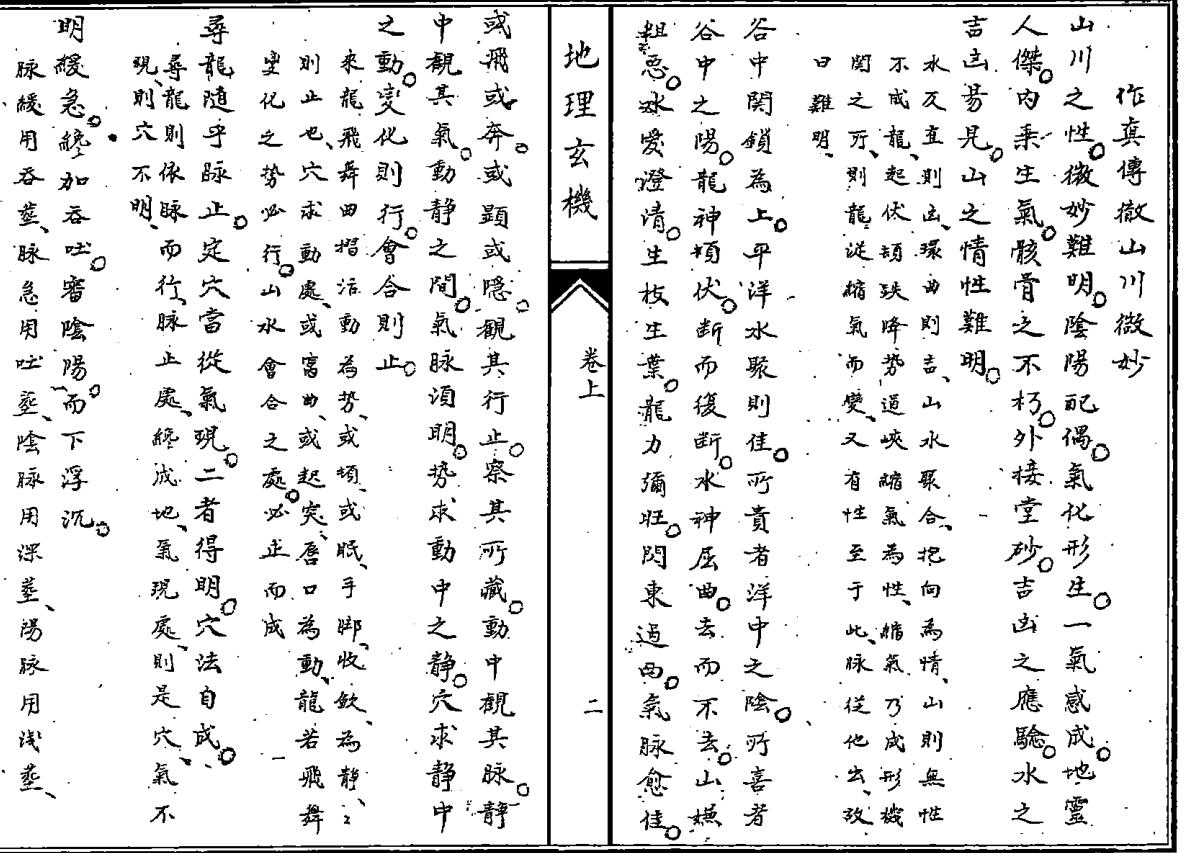 作真傳徹山川微妙
山川之性。微妙難明。陰陽配偶。氣化形生。一氣感成。地靈
人傑。內秉生氣。骸骨之不朽。外接堂砂。吉凶之應驗。水之
吉凶易見。山之情性難明。
水反直則凶、環曲則吉、山水聚合、抱向為情、山則無性
不成龍、起伏頓跌降勢、過峽縮氣為性、縮氣乃成形機
関之所、則龍從縮氣而變、又有性至于此、脉從他出、故
曰難明、
谷中関鎖為上。平洋水聚則佳。所貴者洋中之陰。所喜者
谷中之陽。龍神頓伏。断而復断。水神屈曲。去而不去。山嫌
粗惡。水愛澄清。生枝生葉。龍力彌旺。閃東過西。氣脉愈佳。
地理玄機
卷上
二
或飛或奔。或顯或隱。觀其行止。察其所藏。動中觀其脉。静
中觀其氣。動靜之間。氣脉須明。势求動中之静。穴求静中
之動。变化則行。會合則止。
來龍飛舞曲摺活動為势、或頓或眠、手脚、收歛、為静、〻
則止也、穴求動處、或窩曲、或起突、唇口為動、龍若飛舞
变化之势必行。山水會合之處。必止而成
尋龍随乎脉止。定穴當從氣現。二者得明。穴法自成。
尋龍則依脉而行、脉止處、終成地、氣現處、則是穴、氣不
現、則穴不明、
明緩急。纔加吞吐。審陰陽。而下浮沉。
脉緩用吞塟、脉急用吐塟、陰脉用深塟、陽脉用浅塟、